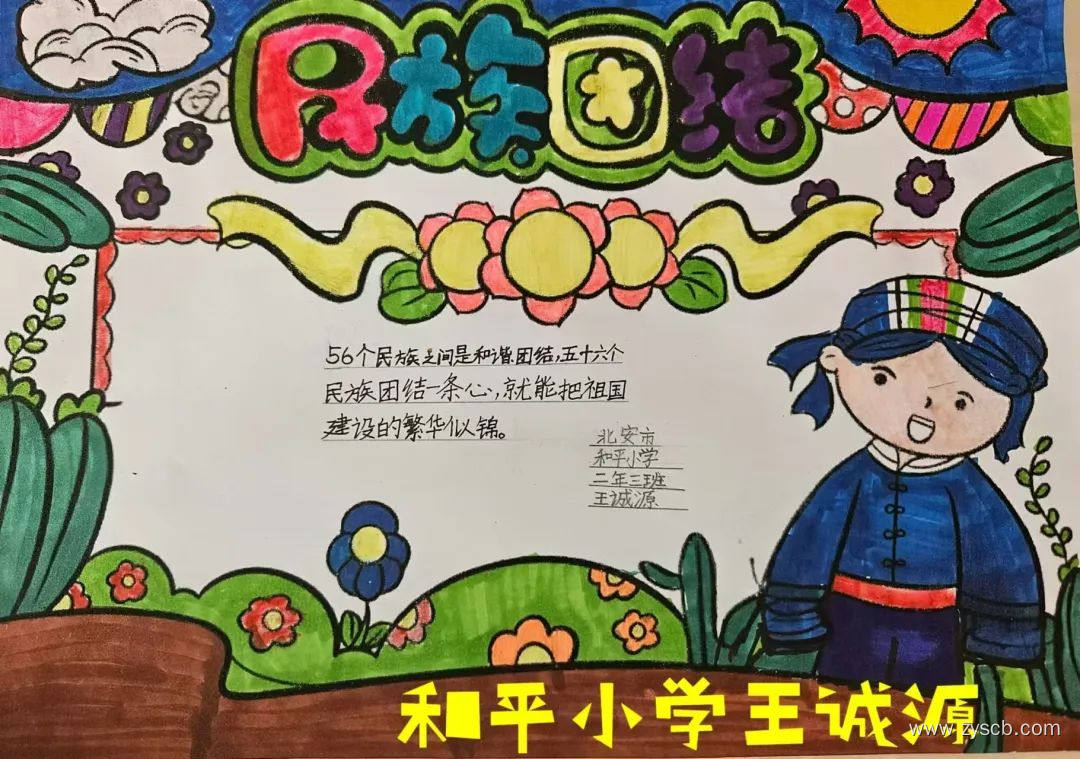 民族团结
56个民族之间是和谐团结,五十六个
民族团结一条心,就能把祖国
建设的繁华似锦。
北安市
和平小学
二年三班
王诚源
和平小学王诚源
www.zyscb.com